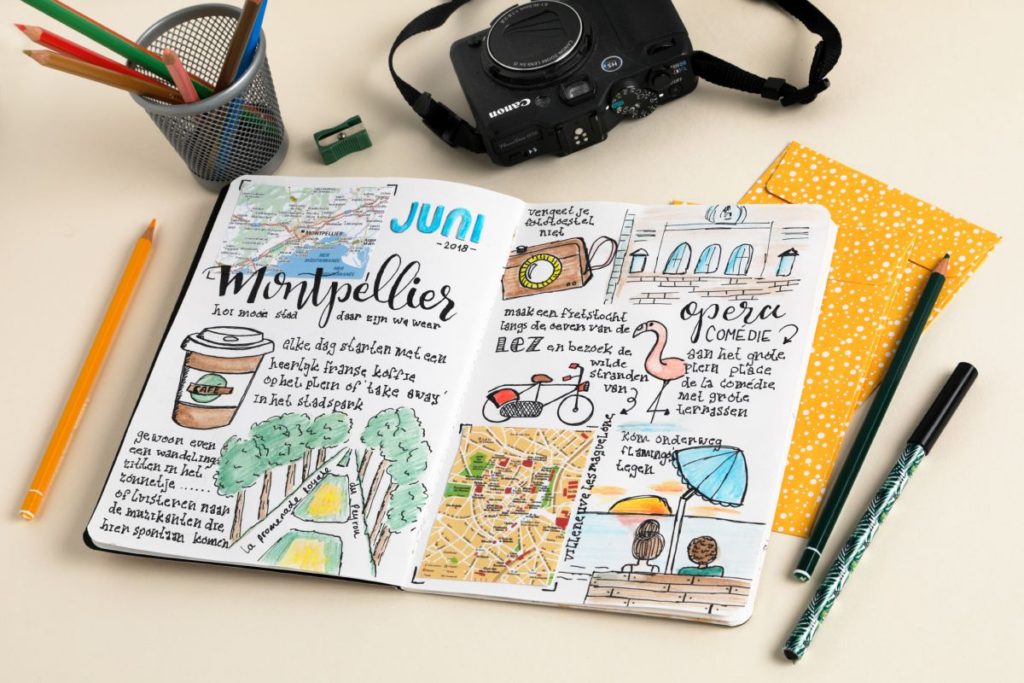 Canon
MONTPELLIER
JUNI
-2018-
Montpellier
hoi mooie stad daar zijn we weer
elke dag starten met een
heerlijk franse koffie
op het plein of 'take away'
in het stadspark
KAFÉ
gewoon even
een wandeling
zitten in het
zonnetje ......
of luisteren naar
de muzikanten die
hier spontaan komen
la promenade royale du peyrou
vergeet je
fototoestel
niet
maak een fietstocht
langs de oeven van de
LEZ en bezoek de
wilde
stranden
van
villeneuve les maguelone
opera
COMÉDIE
aan het grote
plein place
de la comédie
met grote
terrassen
kom onderweg
flamingo's
tegen